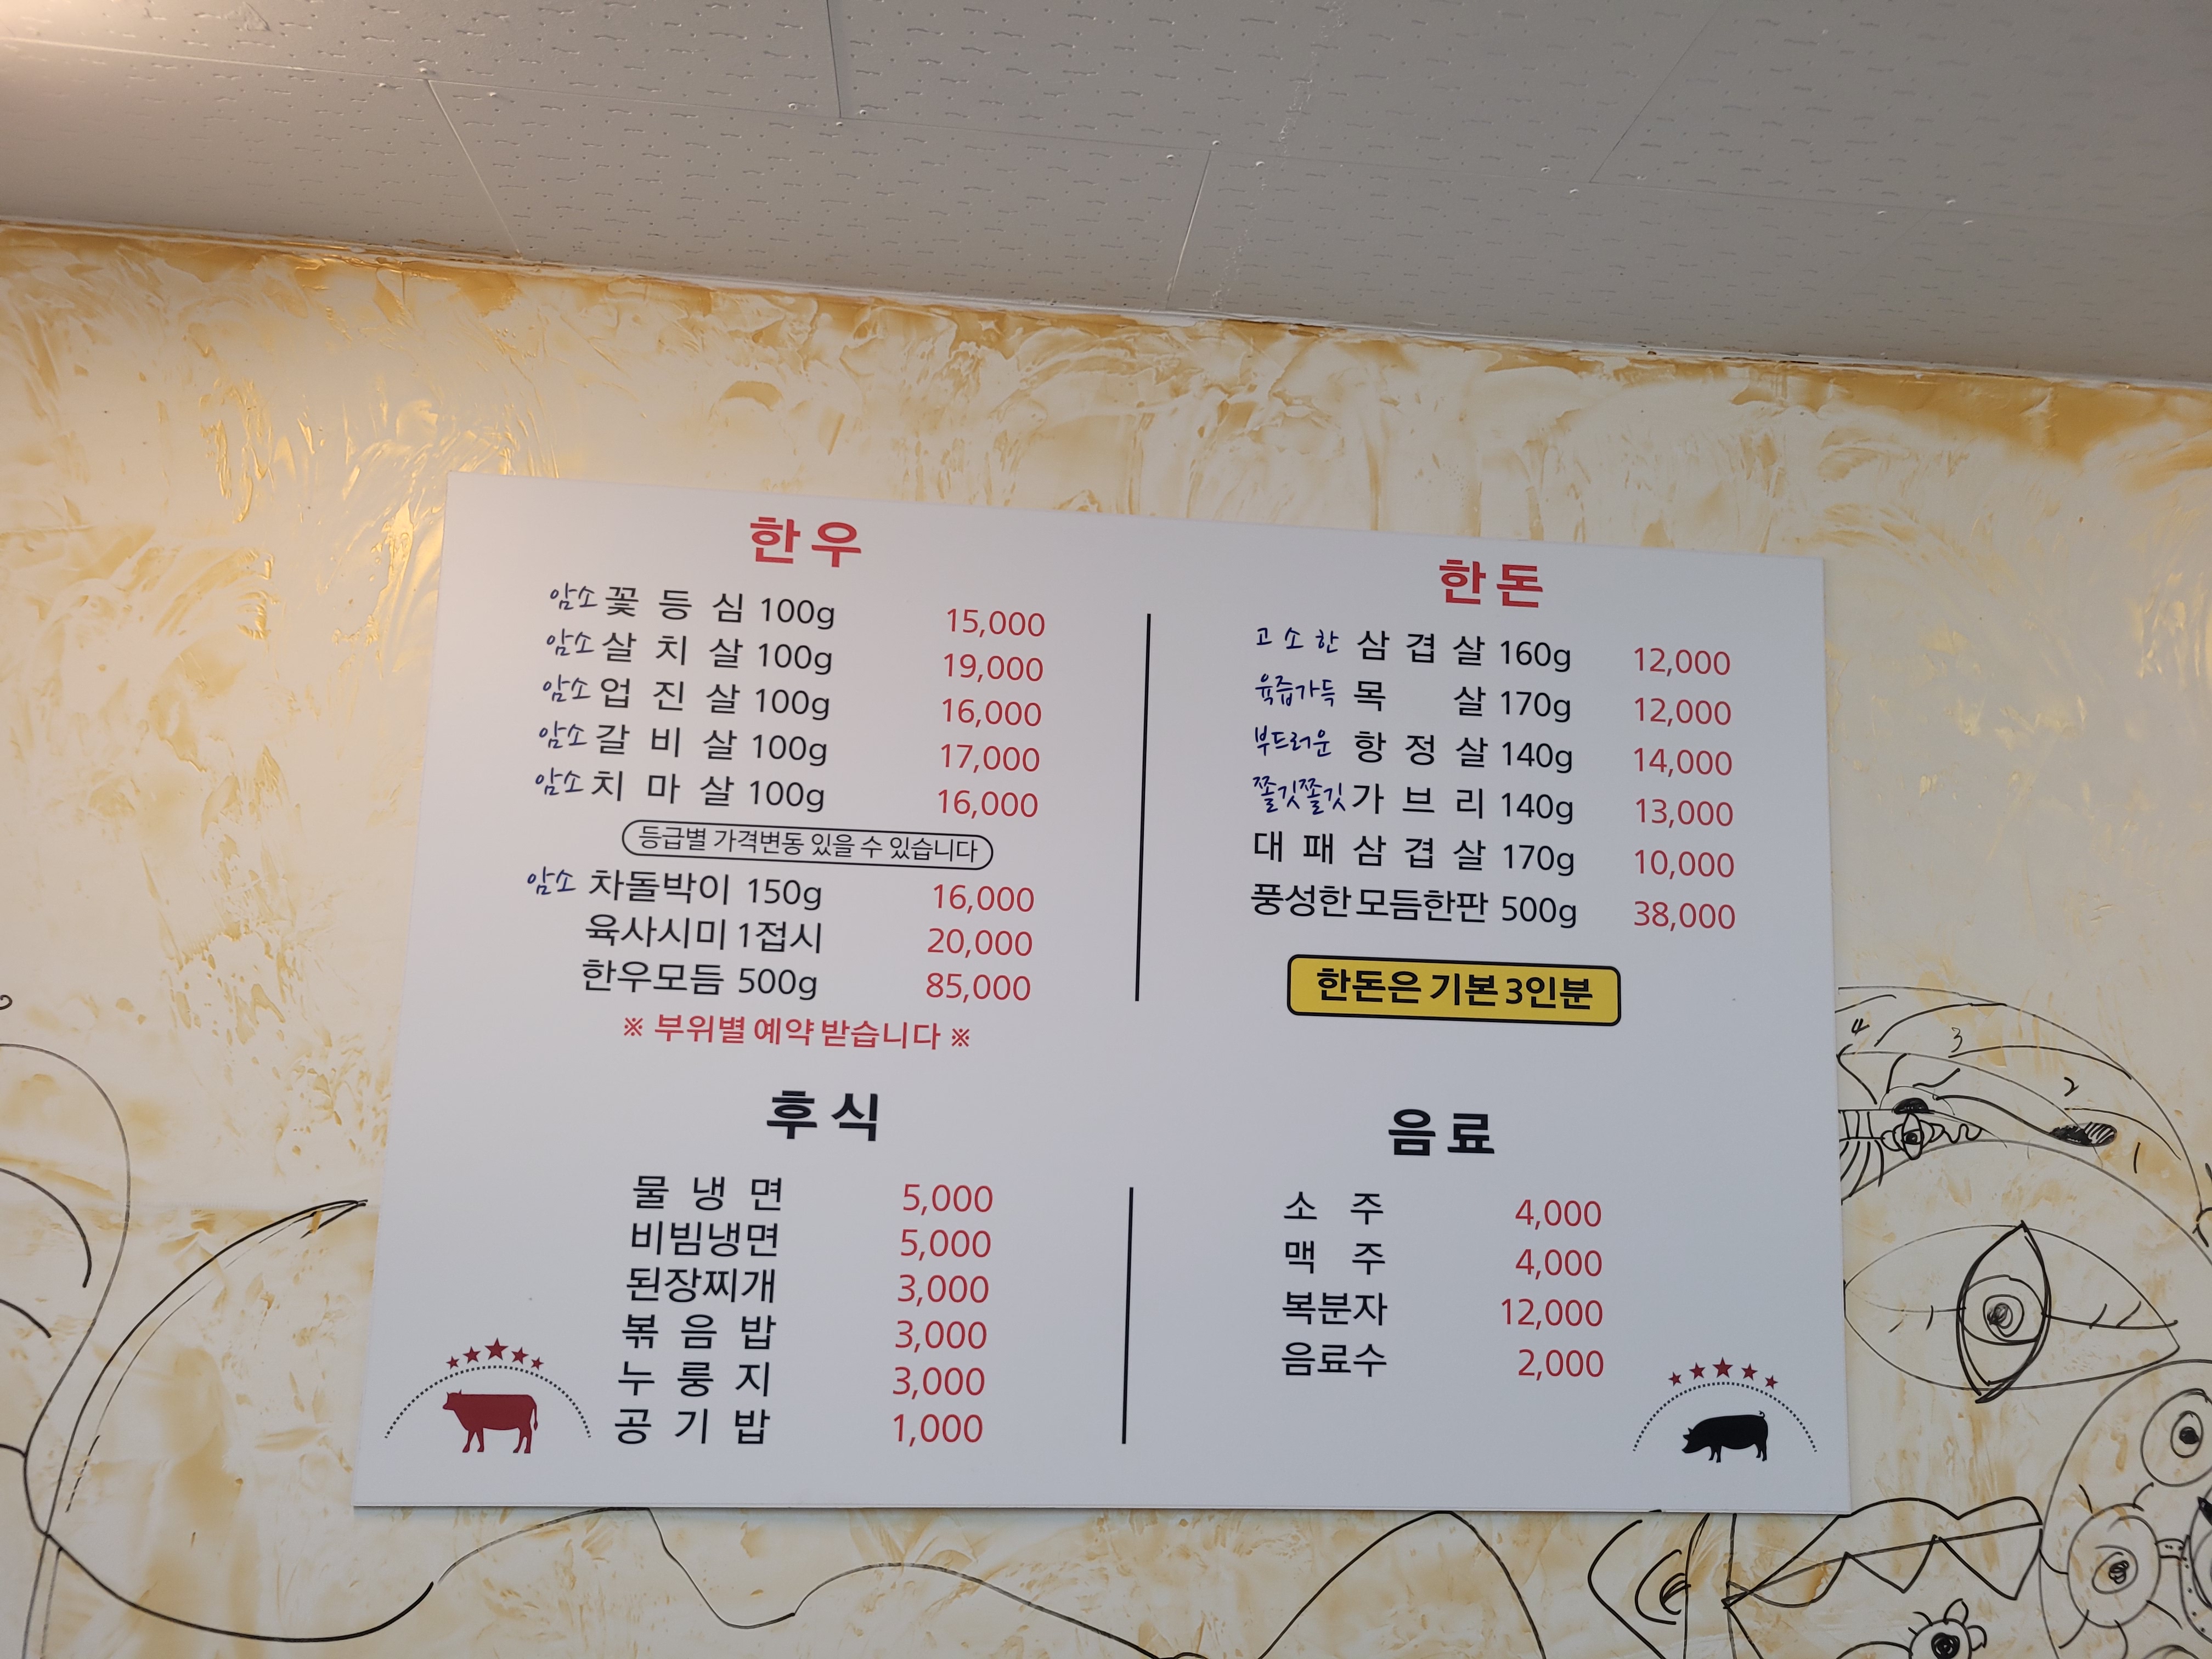 한우
암소 꽃등심 100g 15,000
암소 살치살 100g 19,000
암소 업진살 100g 16,000
암소 갈비살 100g 17,000
암소 치마살 100g 16,000
등급별 가격변동 있을 수 있습니다
암소 차돌박이 150g 16,000
육사시미 1접시 20,000
한우모듬 500g 85,000
※ 부위별 예약 받습니다 ※
한돈
고소한 삼겹살 160g 12,000
육즙가득 목살 170g 12,000
부드러운 항정살 140g 14,000
쫄깃쫄깃 가브리 140g 13,000
대패삼겹살 170g 10,000
풍성한 모듬한판 500g 38,000
한돈은 기본 3인분
후식
물냉면 5,000
비빔냉면 5,000
된장찌개 3,000
볶음밥 3,000
누룽지 3,000
공기밥 1,000
음료
소주 4,000
맥주 4,000
복분자 12,000
음료수 2,000
4
3
2
1